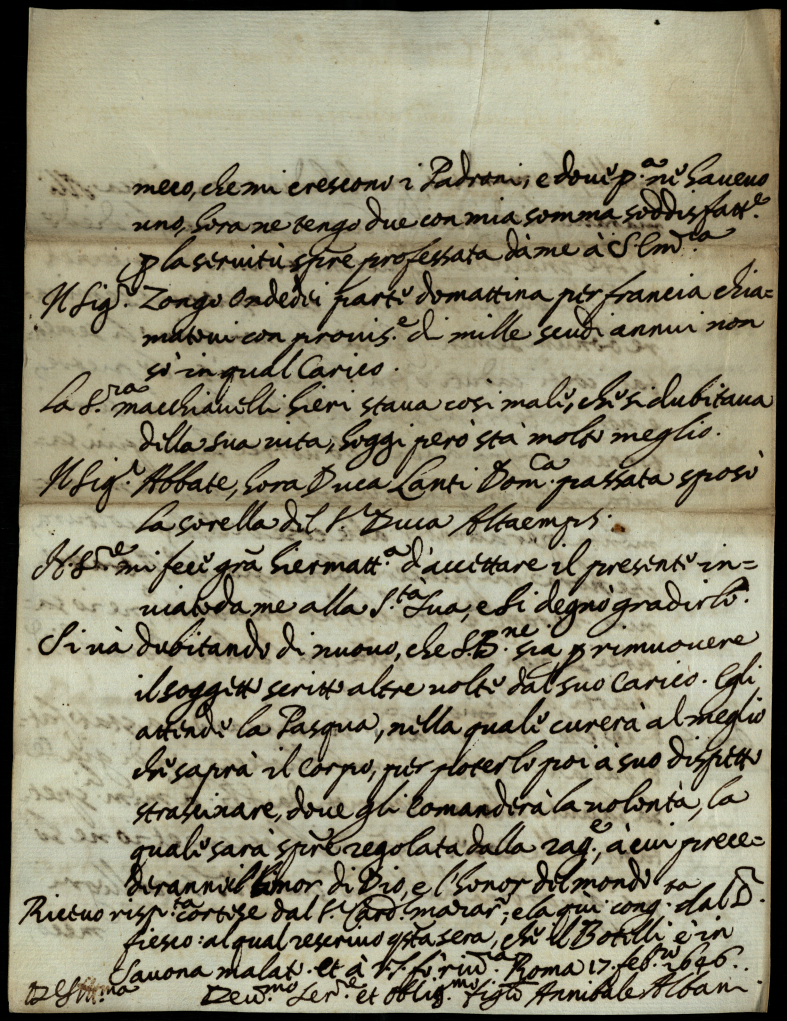 meco, che mi crescono i Padroni, e dove p.a nè havevo
uno, hora ne tengo due con mia somma soddisfatt.e
p la servitù spre professata dà me à S. Em.za
Il Sig.r Zongo Ondedei parte domattina per francia chia=
matovi con provis.e di mille scudi annui non
sò in qual Carico.
La S.ra Macchiavelli hieri stava così male, che si dubitava
della sua vita, hoggi però stà molto meglio.
Il Sig.r Abbate, hora Duca Lanti Dom.ca passata sposò
la sorella del S.r Duca Altaemps.
N. S.re mi fece grã hiermatt.a d'accettare il presente in=
viato da me alla S.tà Sua, e si degnò gradirlo.
Si và dubitando di nuovo, che S. B.ne sia p rimuovere
il soggetto scritto altre volte dal suo Carico. Egli
attende la Pasqua, nella quale curerà al meglio
che saprà il Corpo, per poterlo poi à suo dispetto
strascinare, dove gli Comanderà la volontà, la
quale sarà spre regolata dalla rag.e, à cui prece=
deranno il timor di Dio, e l'honor del mondo
Ricevo risp.ta cortese dal S.r Card. Mazar.o, e la qui cong.ta dal P.
fiesco: al qual rescrivo qsta sera, che il Botelli è in
Savona malato. et à V.S. fò riv.a Roma 17. feb.ro 1646.
Di V.S. Ill.ma
Dev.mo Ser.re et oblig.mo figlo Annibale Albani